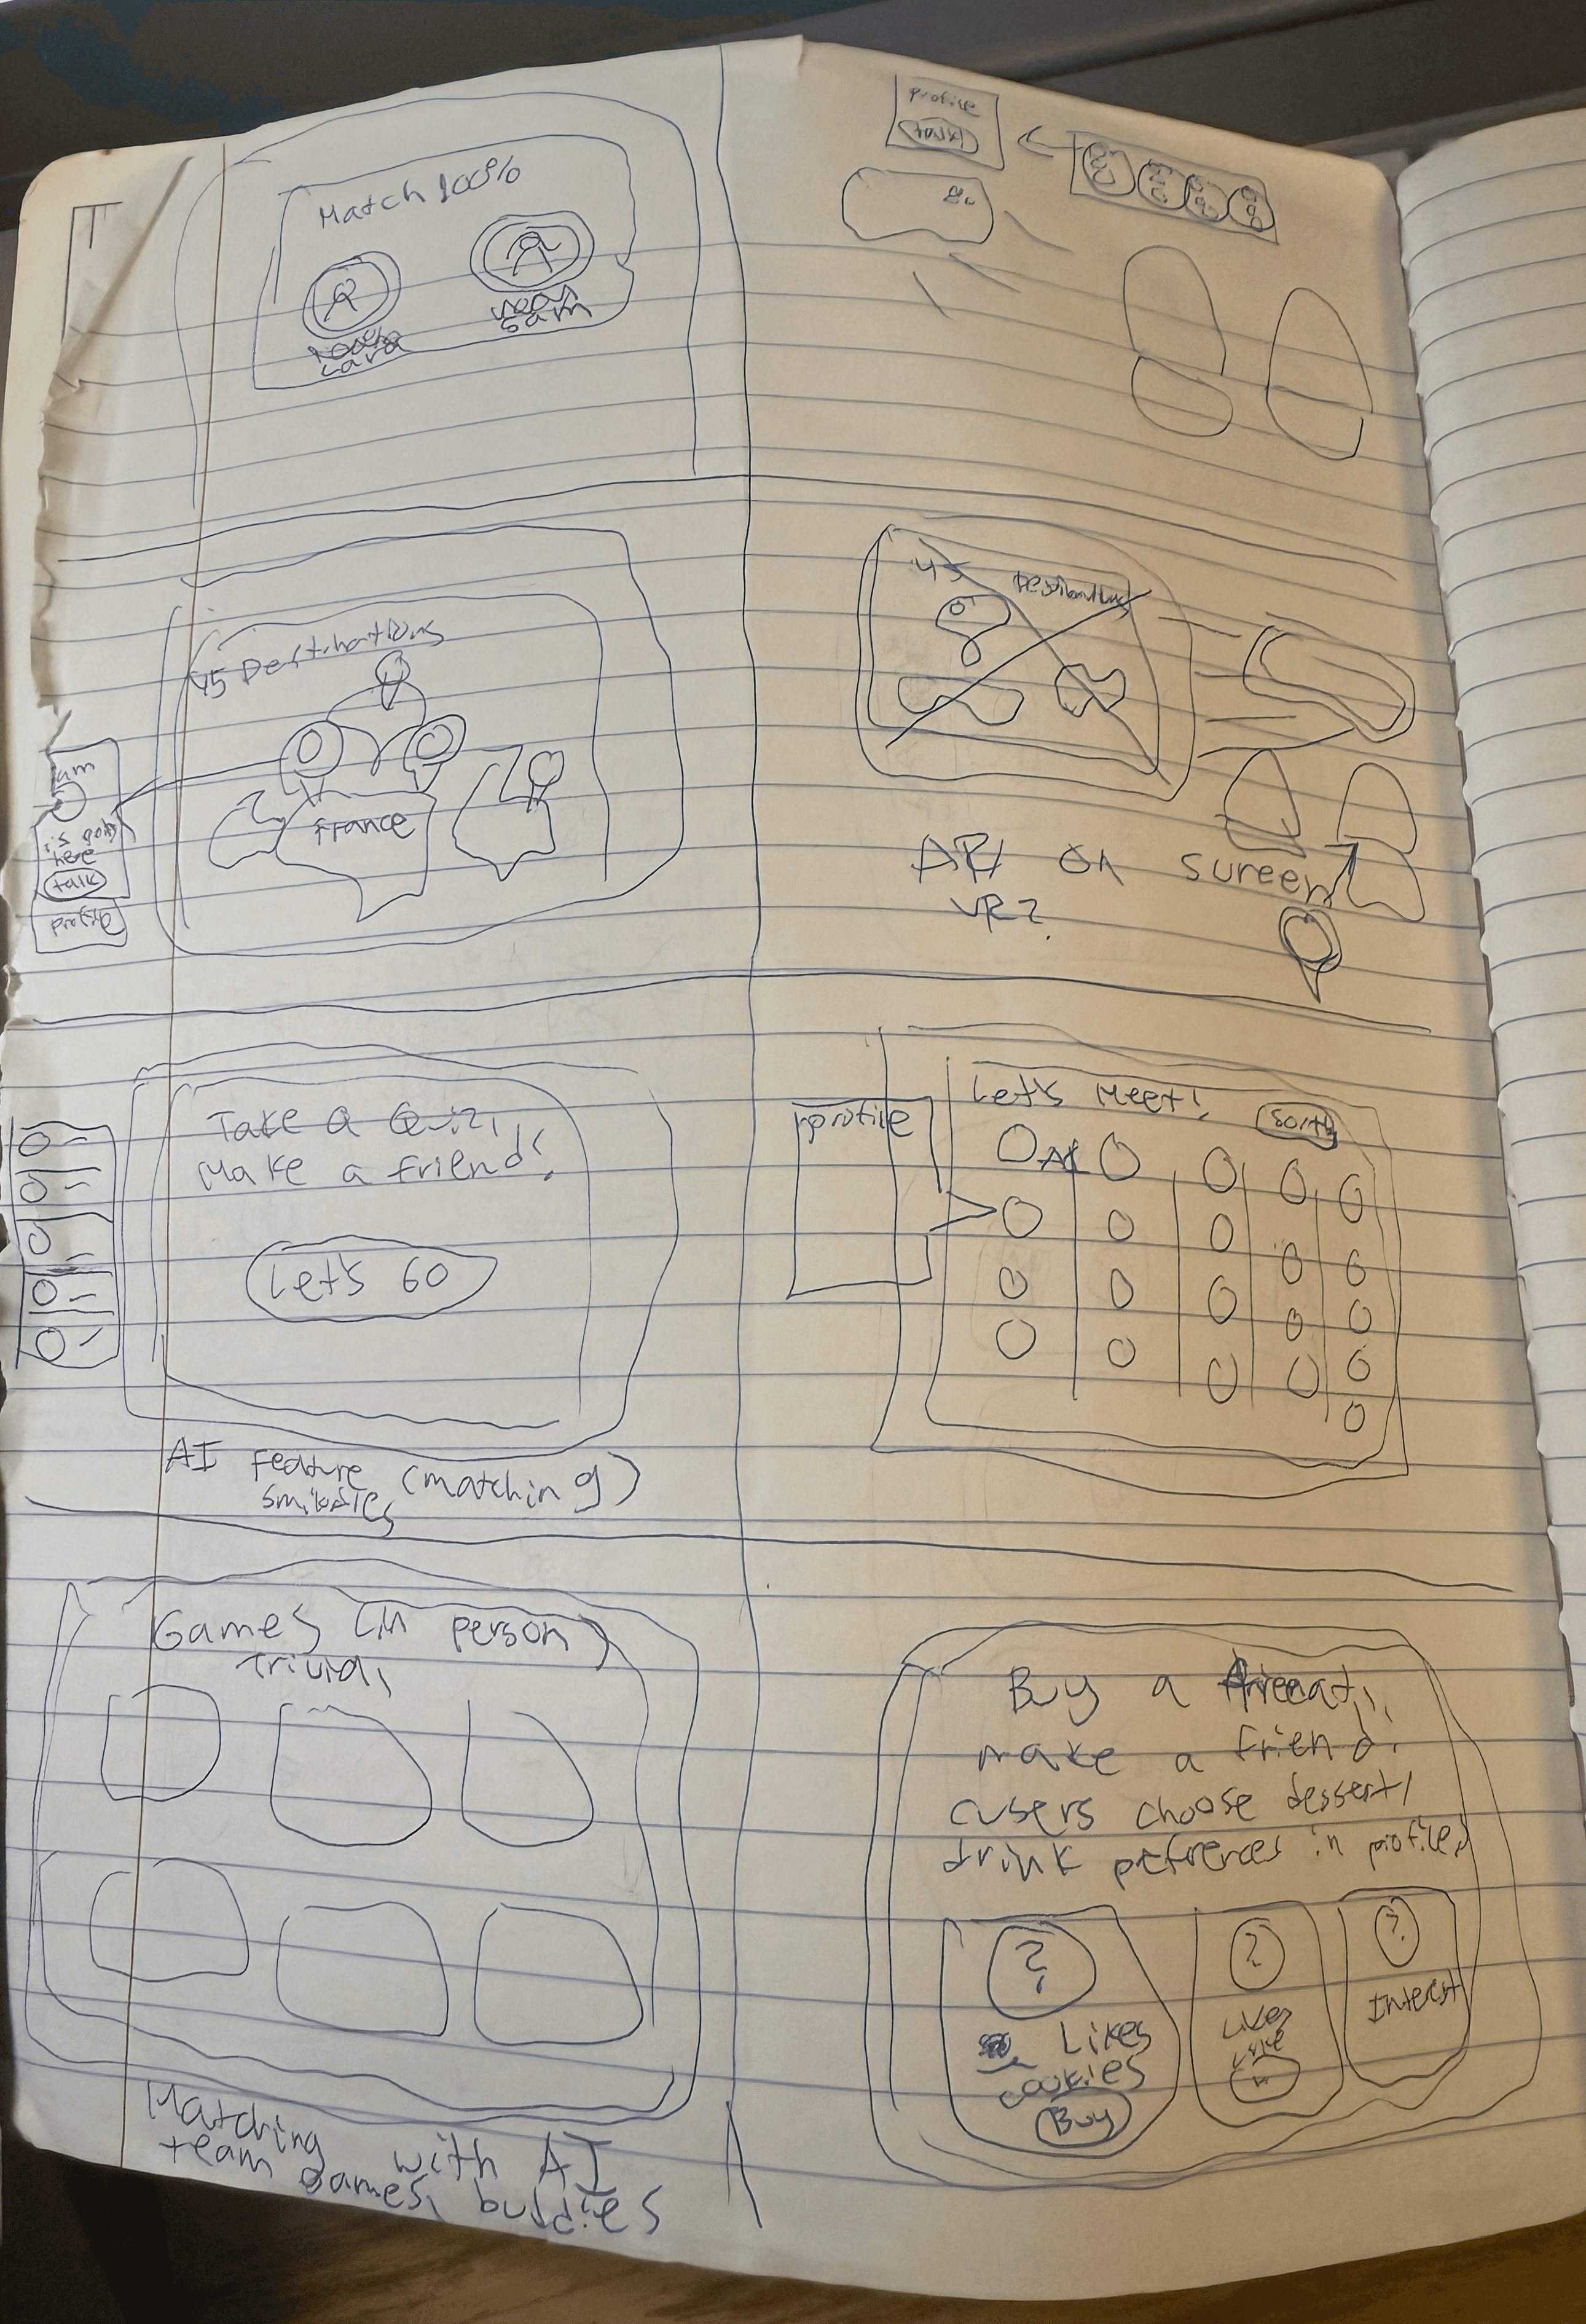 Match 100%
Sam
Cara
profile
talk
45 Destinations
France
am
is
here
talk
profile
45
AR/ on sureen
VR?
Take a Quiz,
Make a friend!
Let's GO
AI feature (matching)
Let's Meet!
Sort
profile
Games (in person)
Trivia,
Matching with AI
team games, buddies
Buy a
make a friend!
(users choose dessert/
drink preferences in profile)
?
Likes
cookies
Buy
?
Likes
?
Interest